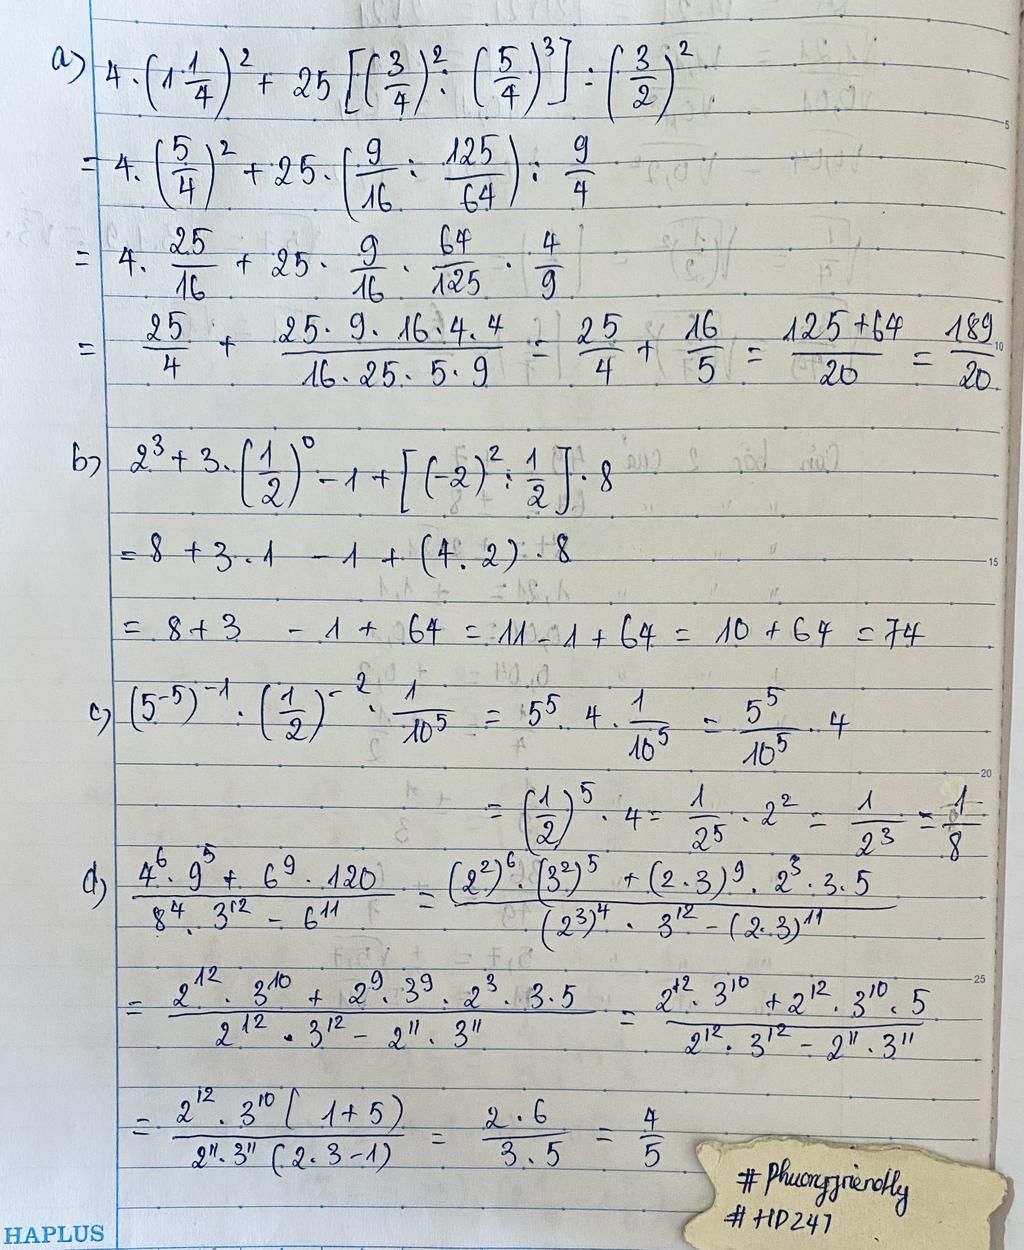 a) 4 · (1 1/4)² + 25 [(3/4)² : (5/4)³] : (3/2)²
= 4 · (5/4)² + 25 · (9/16 : 125/64) : 9/4
= 4 · 25/16 + 25 · 9/16 · 64/125 · 4/9
= 25/4 + (25 · 9 · 16 · 4 · 4)/(16 · 25 · 5 · 9) = 25/4 + 16/5 = (125 + 64)/20 = 189/20
b) 2³ + 3 · (1/2)⁰ - 1 + [(-2)² : 1/2] · 8
= 8 + 3 · 1 - 1 + (4 · 2) · 8
= 8 + 3 - 1 + 64 = 11 - 1 + 64 = 10 + 64 = 74
c) (5⁻⁵)⁻¹ · (1/2)⁻² · 1/10⁵ = 5⁵ · 4 · 1/10⁵ = 5⁵/10⁵ · 4
= (1/2)⁵ · 4 = 1/2⁵ · 2² = 1/2³ = 1/8
d) (4⁶ · 9⁵ + 6⁹ · 120)/(8⁴ · 3¹² - 6¹¹) = ((2²)⁶ · (3²)⁵ + (2 · 3)⁹ · 2³ · 3 · 5)/((2³)⁴ · 3¹² - (2 · 3)¹¹)
= (2¹² · 3¹⁰ + 2⁹ · 3⁹ · 2³ · 3 · 5)/(2¹² · 3¹² - 2¹¹ · 3¹¹) = (2¹² · 3¹⁰ + 2¹² · 3¹⁰ · 5)/(2¹² · 3¹² - 2¹¹ · 3¹¹)
= (2¹² · 3¹⁰ (1 + 5))/(2¹¹ · 3¹¹ (2 · 3 - 1)) = (2 · 6)/(3 · 5) = 4/5
# Phuongfriendly
# HD247
HAPLUS
5
10
15
20
25